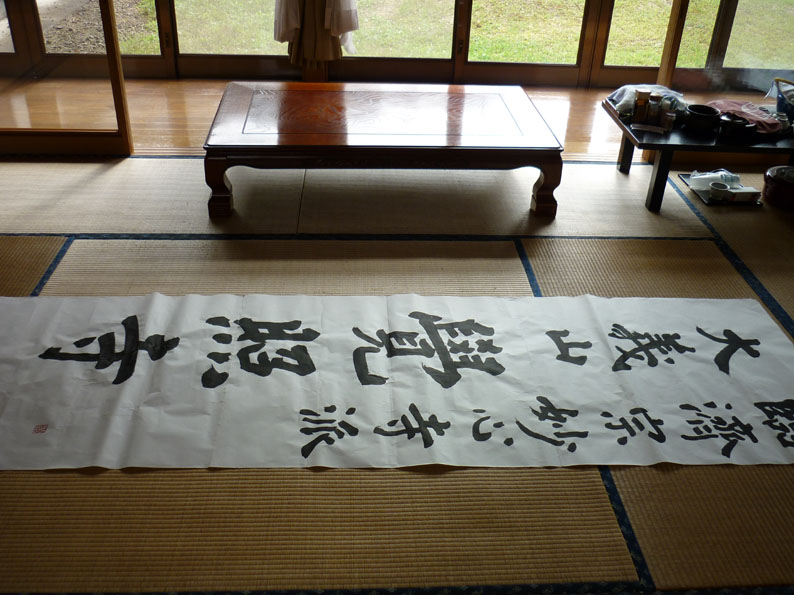 臨濟宗妙心寺派
大義山覺照寺